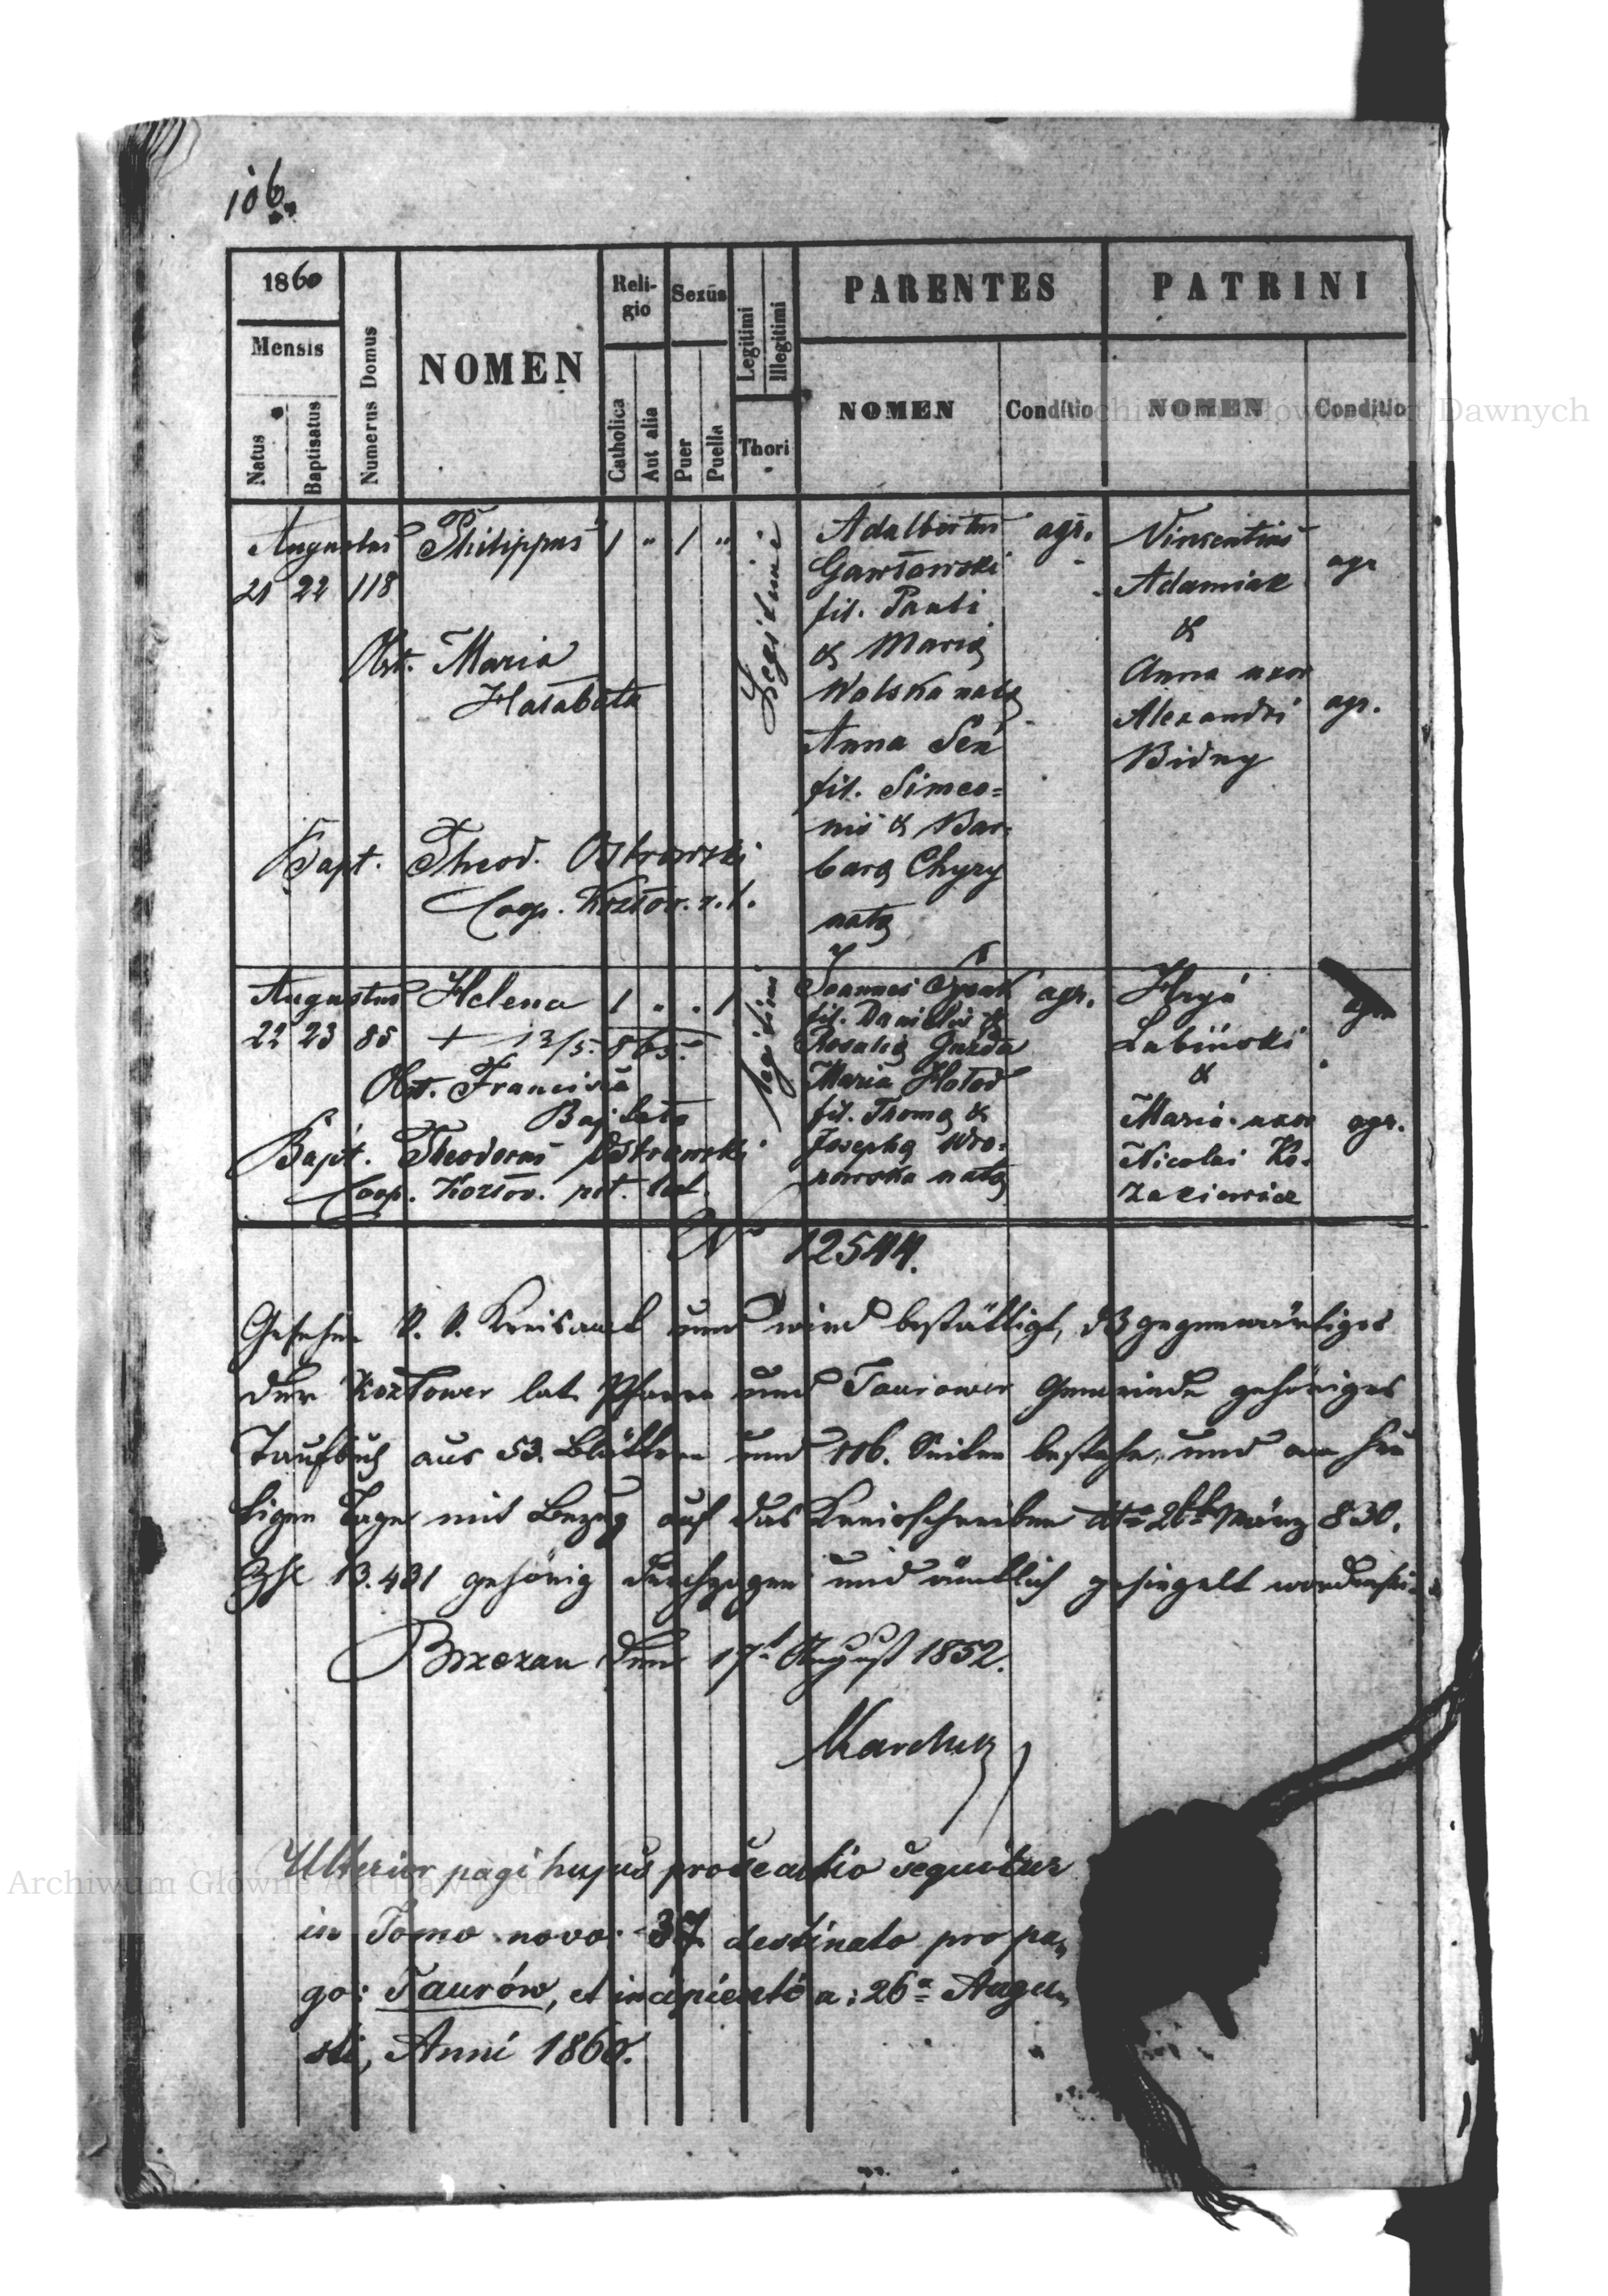 106.
1860
Mensis
Natus
Baptisatus
Numerus Domus
NOMEN
Reli-
gio
Catholica
Aut alia
Sexus
Puer
Puella
Legitimi
Illegitimi
Thori
PARENTES
NOMEN
Conditio
PATRINI
NOMEN
Conditio
Augustus
21 22 118
Philippus
1 " 1 "
Obst. Maria
Hałabuta
Bapt. Theod. Ostrowski
Coop. Kozłov. r. l.
Legitimi
Adalbertus
Gawłowski
fil. Pauli
& Maria
Wolska nata
Anna Seń
fil. Simeo=
nis & Bar-
bara Chyzy
nata
agr.
Vincentius
Adamiak
&
Anna uxor
Alexandri
Bidny
agr
agr.
Augustus
22 23 85
Helena
1 " . 1
+ 12/5. 865.
Obst. Francisca
Bapt. Theodorus Ostrowski
Coop. Kozłov. rit. lat.
Legitimi
Joannes
fil. Danielis &
Rosalia Gazda
Maria Hołod
fil. Thoma &
Josepha Wro-
nowska nata
agr.
Hryń
Labiński
&
Maria uxor
Nicolai Ko-
zakiewicz
agr.
agr.
No 12544.
Gesehen k. k. Kreisamt und wird bestättigt, dß gegenwärtiges
der Kozłower lat. Pfarre und Taurower Gemeinde gehöriges
Taufbuch aus 53. Blättern und 106. Seiten bestehe, und am heu
tigen Tage mit Bezug auf das Kreisschreiben dto 26ten März 830.
Zhl 13.431 gehörig durchzogen und ämtlich gesiegelt worden sei.
Brzezan den 17t August 1852.
Ulterior pagi hujus prosecutio sequitur
in Tomo novo: 37 destinato pro pa„
go: Taurów, et incipiente a: 26a Augu„
sti, Anni 1860.
Archiwum Główne Akt Dawnych
Archiwum Główne Akt Dawnych